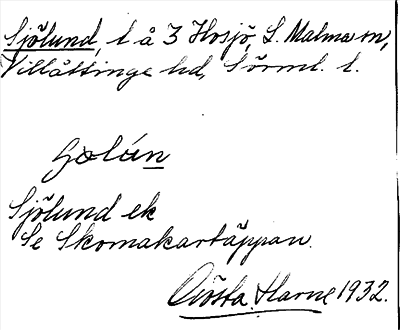 Sjölund, t å 3 Hosjö, L. Malma sn,
Villåttinge hd, Sörml. l.
Sjölund ek
Se Skomakartäppan.
Gösta Harne 1932.